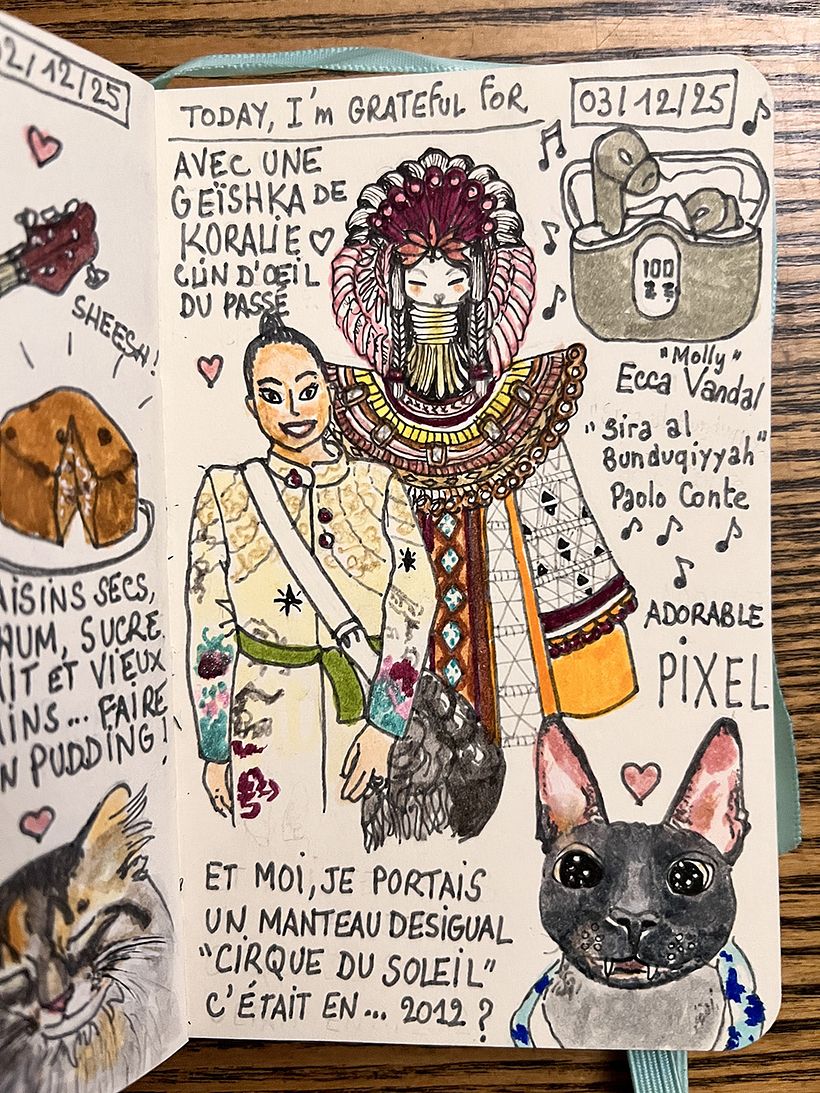 2/12/25
SHEESH!
AISINS SECS,
HUM, SUCRE,
AIT ET VIEUX
AINS... FAIRE
N PUDDING!
TODAY, I'm GRATEFUL FOR
03/12/25
AVEC UNE
GEÏSHKA DE
KORALIE
CLIN D'ŒIL
DU PASSÉ
100
"Molly"
Ecca Vandal
"Sira al
Bunduqiyyah"
Paolo Conte
ADORABLE
PIXEL
ET MOI, JE PORTAIS
UN MANTEAU DESIGUAL
"CIRQUE DU SOLEIL"
C'ÉTAIT EN... 2012?